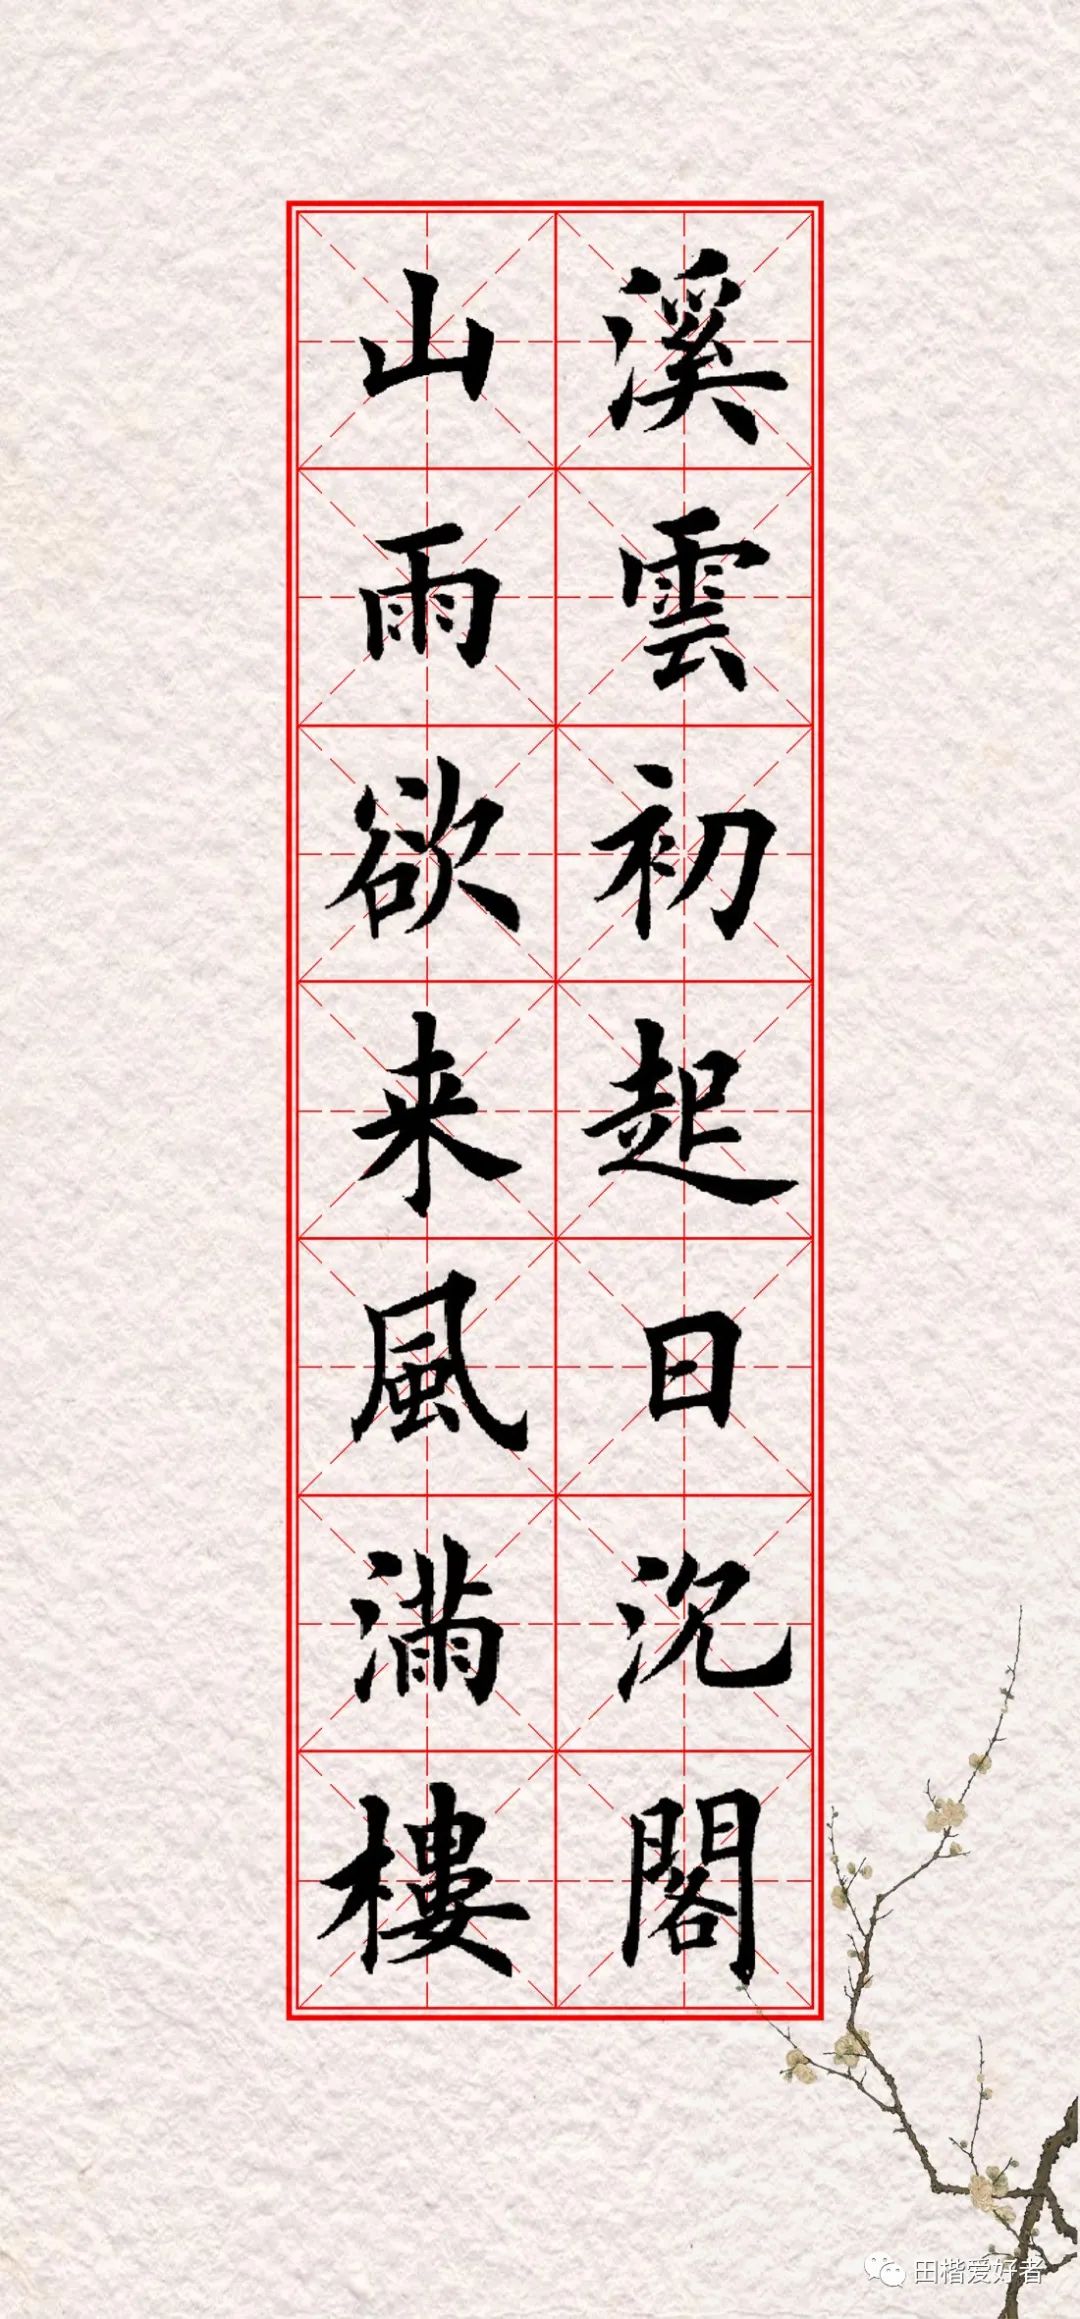 溪雲初起日沉閣
山雨欲来風滿樓
田楷爱好者